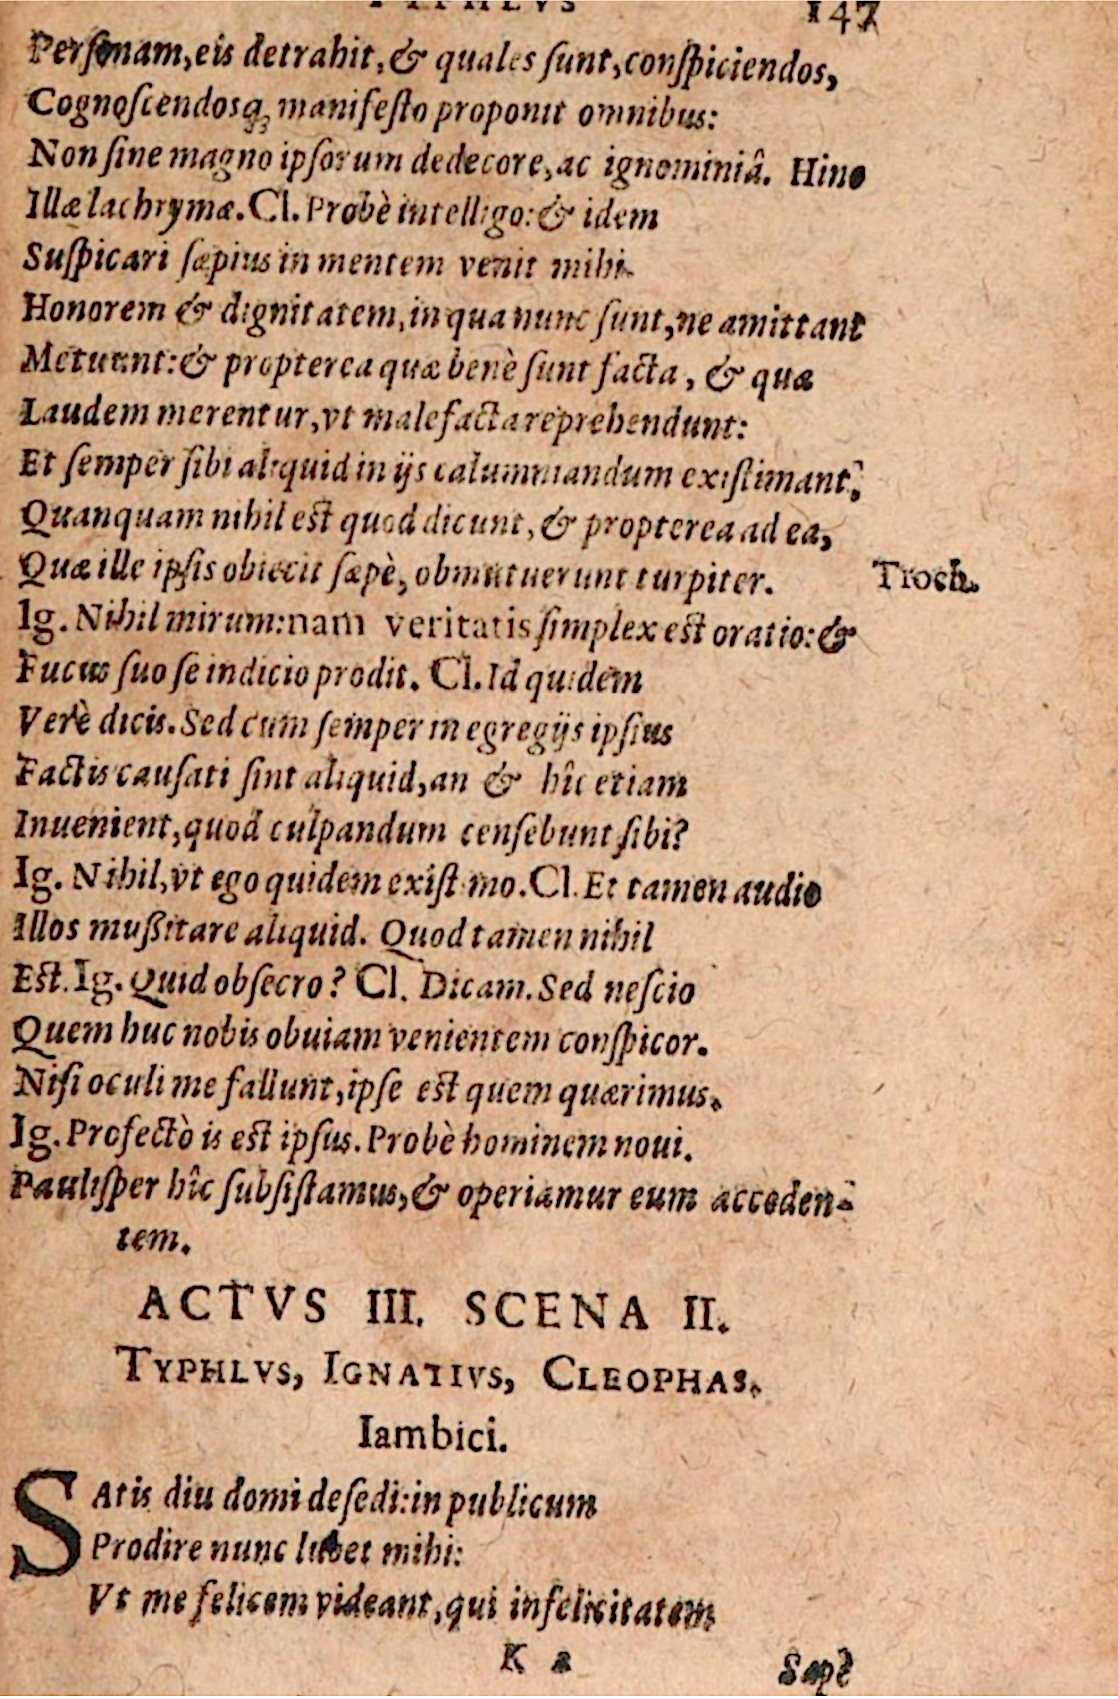 TYPHLVS 147
Perſonam,eis detrahit,& quales ſunt,conſpiciendos,
Cognoſcendosq́; manifeſto proponit omnibus:
Non ſine magno ipſorum dedecore,ac ignominiâ. Hinc
Illæ lachrymæ. Cl. Probè intelligo:& idem
Suſpicari ſæpius in mentem venit mihi.
Honorem & dignitatem,in qua nunc ſunt,ne amittant
Metuunt:& propterea quæ benè ſunt facta, & quæ
Laudem merentur,vt malefacta reprehendunt:
Et ſemper ſibi aliquid in ijs calumniandum exiſtimant;
Quanquam nihil eſt quod dicunt,& propterea ad ea,
Quæ ille ipſis obiecit ſæpè, obmutuerunt turpiter. Troch.
Ig. Nihil mirum:nam veritatis ſimplex eſt oratio:&
Fucus ſuo ſe indicio prodit. Cl. Id quidem
Verè dicis. Sed cùm ſemper in egregijs ipſius
Factis cauſati ſint aliquid,an & hîc etiam
Inuenient,quod culpandum cenſebunt ſibi?
Ig. Nihil,vt ego quidem exiſtimo. Cl. Et tamen audio
Illos mußitare aliquid. Quod tamen nihil
Eſt. Ig. Quid obſecro? Cl. Dicam. Sed neſcio
Quem huc nobis obuiam venientem conſpicor.
Niſi oculi me fallunt,ipſe eſt quem quærimus.
Ig. Profectò is eſt ipſus. Probè hominem noui.
Pauliſper hîc ſubſiſtamus,& operiamur eum acceden-
tem.
ACTVS III. SCENA II.
TYPHLVS, IGNATIVS, CLEOPHAS.
Iambici.
SAtis diu domi deſedi:in publicum
Prodire nunc lubet mihi:
Vt me felicem videant,qui infelicitatem
K 2 Sæpè